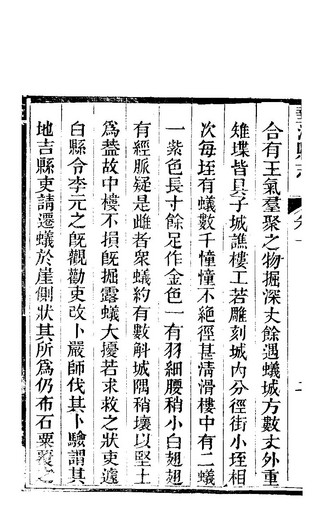 合有王氣羣聚之物掘深丈餘遇蟻城方數丈外重
雉堞皆具子城譙樓工若雕刻城內分徑街小垤相
次每垤有蟻數千憧憧不絕徑甚清滑樓中有二蟻
一紫色長寸餘足作金色一有羽細腰稍小白翅翅
有經脈疑是雌者衆蟻約有數斛城隅稍壞以堅土
爲葢故中樓不損旣掘露蟻大擾若求救之狀吏遽
白縣令李元之旣觀勸吏改卜嚴師伐其卜驗謂其
地吉縣吏請遷蟻於崖側狀其所爲仍布石粟覆之